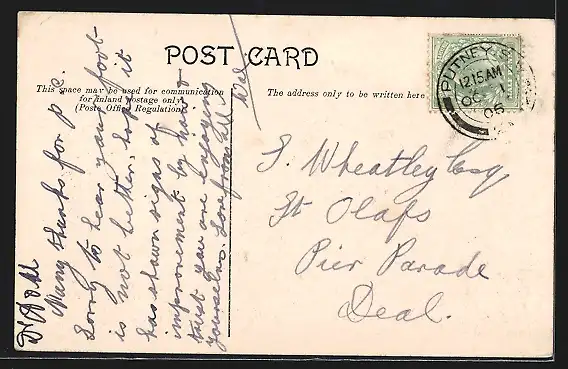 POST CARD
This space may be used for communication
for inland postage only.
(Post Office Regulation)
The address only to be written here
PUTNEY S.
12.15 AM
OC 1
06
J. Wheatley Esq
St Olafs
Pier Parade
Deal.
Many thanks for p.c.
Sorry to hear your foot
is not better, hope it
has shown signs of
improvement by now &
trust you are enjoying
yourselves. Love from all